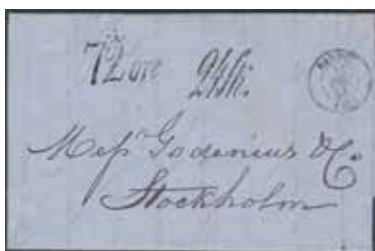 72 öre 24 sk.
Messrs Godenius & Co
Stockholm